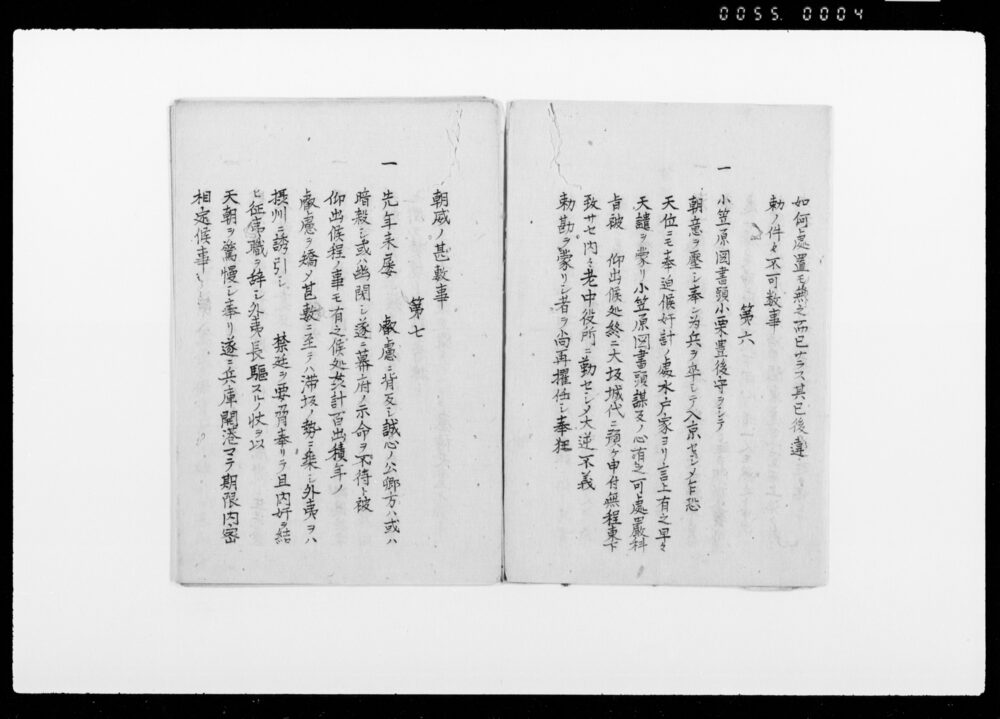 0055. 0004
如何處置モ無之而已ナラス其已後違
勅ノ件々不可数事
第六
一 小笠原図書頭小栗豊後守ヲシテ
朝意ヲ壓シ奉シ為兵ヲ卒シテ入京セシメ乍恐
天位ニモ奉迫候奸計ノ處水戸家ヨリ言上有之早々
天譴ヲ蒙リ小笠原図書頭謀反ノ心有之可處嚴科
旨被 仰出候処終ニ大坂城代ニ預ケ申付無程東下
致サセ内々老中役所ニ勤セシメ大逆不義
勅勘ヲ蒙リシ者ヲ尚再擢任シ奉狂
朝威ノ甚敷事
第七
一 先年来屡 叡慮ニ背反シ誠心ノ公卿方ハ或ハ
暗殺シ或ハ幽閉シ遂ニ幕府ノ示命ヲ不待ト被
仰出候程ノ事モ有之候処奸計百出積年ノ
叡慮ヲ矯メ甚敷ニ至テハ滞坂ノ勢ニ乗シ外夷ヲハ
摂州ニ誘引シ 禁廷ヲ要脅奉リテ且内奸ヲ結
ヒ征夷ノ職ヲ辞シ外夷長驅スルノ状ヲ以
天朝ヲ驚慢シ奉リ遂ニ兵庫開港マテ期限内密
相定候事